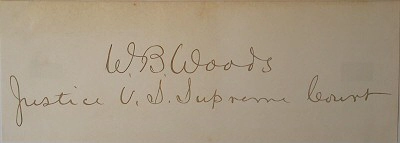 W. B. Woods
Justice U. S. Supreme Court